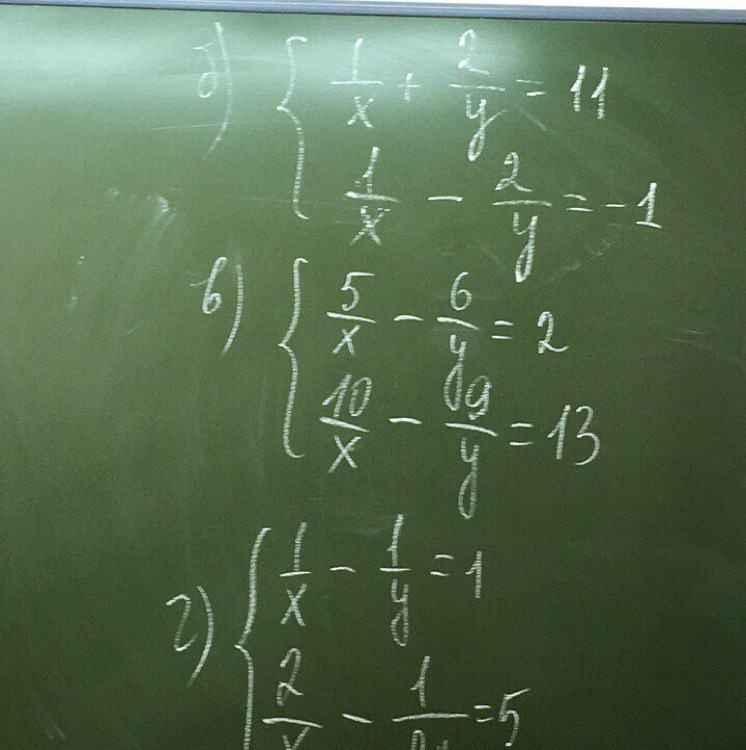 б) { 1/x + 2/y = 11
1/x - 2/y = -1
в) { 5/x - 6/y = 2
10/x - 9/y = 13
г) { 1/x - 1/y = 1
2/x - 1/ = 5